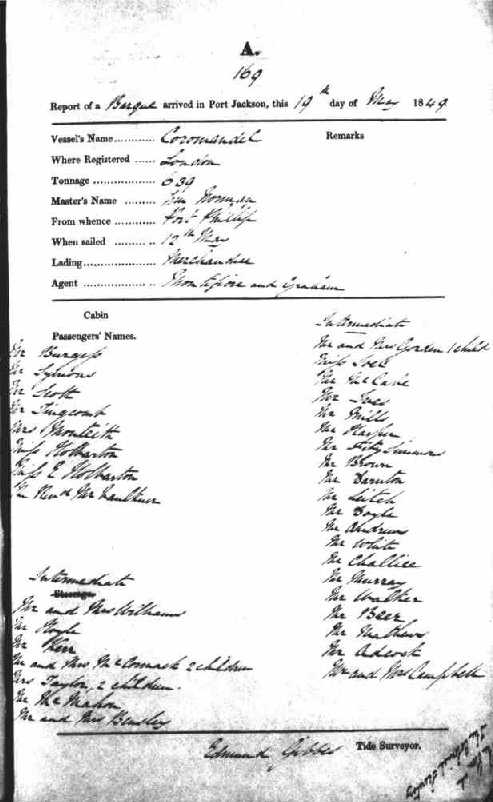 A.
169
Report of a Barque arrived in Port Jackson, this 19th day of May 1849
Vessel's Name Coromandel
Remarks
Where Registered London
Tonnage 639
Master's Name
From whence Port Phillip
When sailed 12th May
Lading Merchandise
Agent Montefiore and Graham
Cabin
Passengers' Names.
Mr Burgess
Mr Symons
Mr Scott
Mr Lingcomb
Mrs Monteith
Miss Wotherton
Miss E Wotherton
Intermediate
Steerage
Mr and Mrs Withams
Mr Hoyle
Mr Kerr
Mr and Mrs McCormack 2 children
Mrs Taylor, 2 children.
Mr McMahon
Mr and Mrs Bensley
Intermediate
Mr and Mrs Gordon 1 child
Miss Ives
Mr McCabe
Mr Ives
Mr Mills
Mr Harper
Mr Fitzsimmons
Mr Brown
Mr Barnton
Mr Leitch
Mr Boyle
Mr Andrews
Mr White
Mr Challice
Mr Murray
Mr Walker
Mr Beer
Mr Mathews
Mr Adcock
Mr and Mrs Campbell
Edmund Gibbes Tide Surveyor.